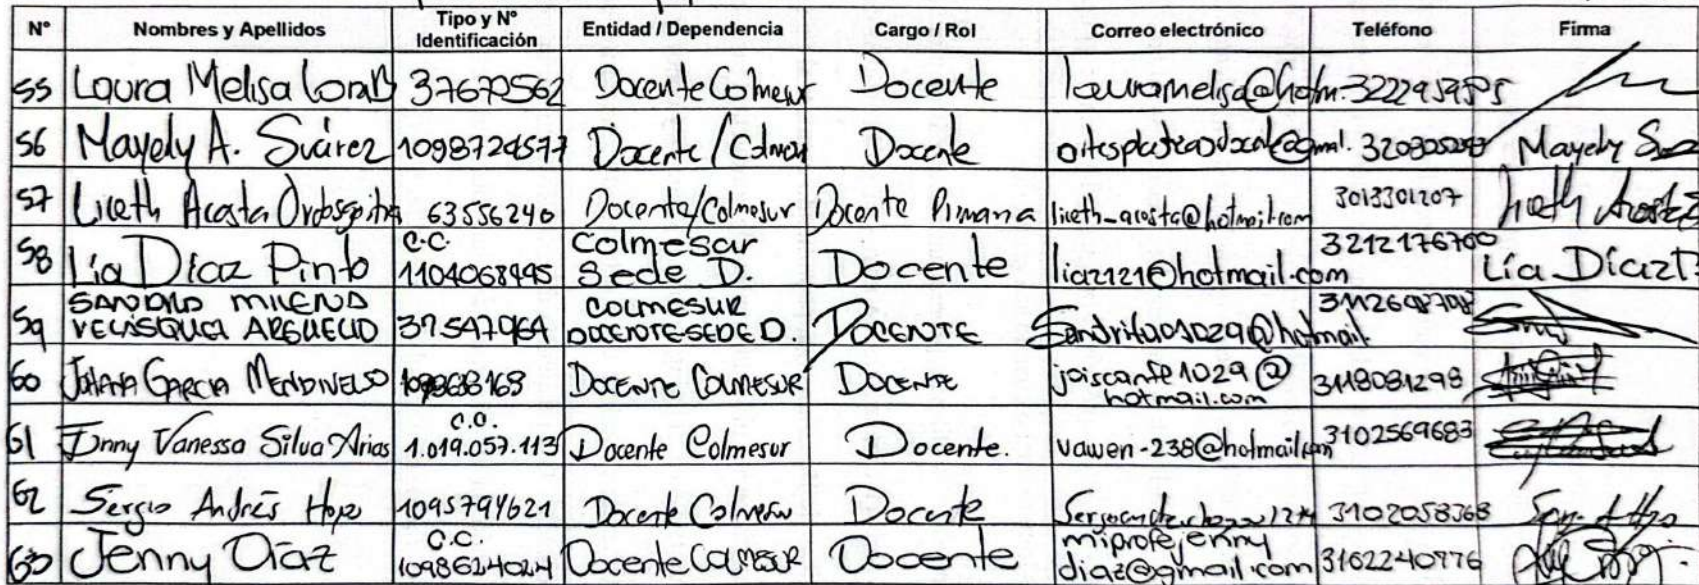 N° Nombres y Apellidos Tipo y N° Identificación Entidad / Dependencia Cargo / Rol Correo electrónico Teléfono Firma
55 Laura Melisa 37672562 Docente Colmesur Docente lauramelisa@hotm.
56 Mayely A. Suárez 1098724577 Docente / Colmesur Docente Mayely
57 Liceth Acosta 63556240 Docente/Colmesur Docente Primaria liceth_acosta@hotmail.com 3013301207 Liceth Acosta
58 Lía Díaz Pinto C.C. 1104068995 Colmesur Sede D. Docente liaz121@hotmail.com 3212176700 Lía Díaz P.
59 SANDRA MILENA VELÁSQUEZ ARGUELLO 37547964 COLMESUR DOCENTE SEDE D. DOCENTE
60 JOHANA GARCIA MENDIVELSO DOCENTE COLMESUR DOCENTE joiscante1029@hotmail.com 3118081298
61 Jenny Vanessa Silva Arias C.C. 1.019.057.113 Docente Colmesur Docente. vawen-238@hotmail.com 3102569683
62 Sergio Andrés 1095794621 Docente Colmesur Docente 3102058368
63 Jenny Díaz C.C. 1098624024 Docente COLMESUR Docente miprofejennydiaz@gmail.com 3162240776